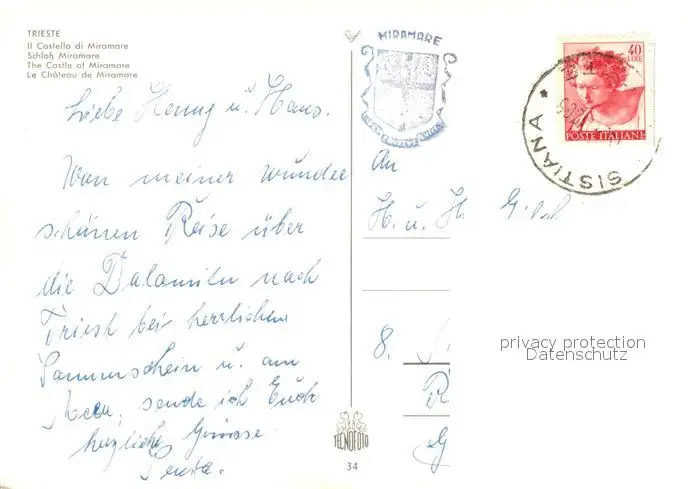 TRIESTE
Il Castello di Miramare
Schloß Miramare
The Castle of Miramare
Le Château de Miramare
Liebe Henny u. Hans.
Von meiner wunder
schönen Reise über
die Dolomiten nach
Triest bei herrlichem
Sonnenschein u. am
Meer, sende ich Euch
herzliche Grüsse
MIRAMARE
40
LIRE
POSTE ITALIANE
SISTIANA
An
H. u. H.
8.
privacy protection
Datenschutz
TECNOFOTO
34